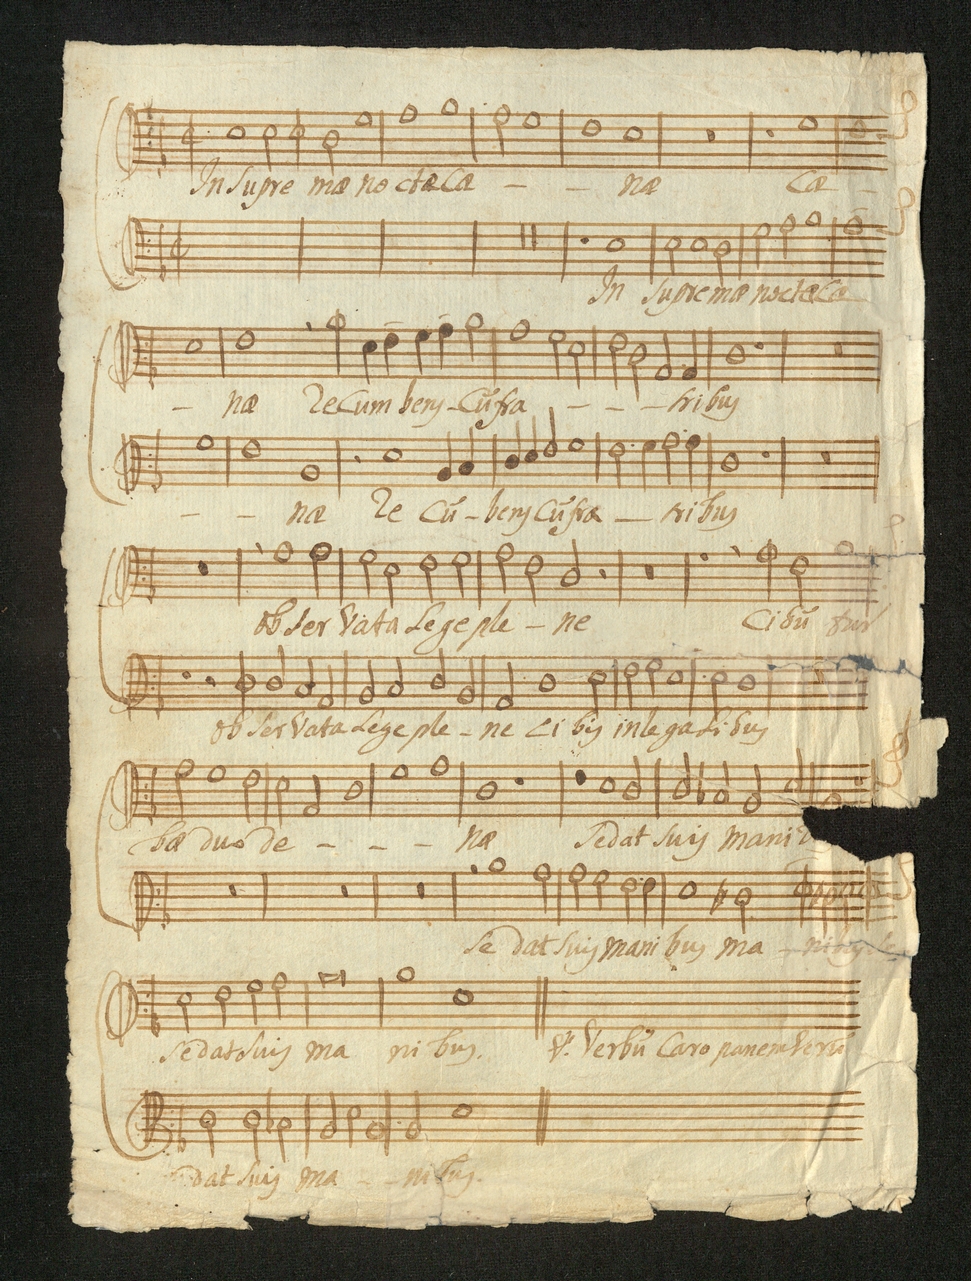 In supre mæ nocte Cæ - - næ Cæ -
In supre mæ nocte Cæ
- næ Recum bens - Cũ fra - - - tribus
- - næ Re cũ - bens Cũ fra - tribus
observata Lege ple - ne Cibũ tur
observata Lege ple - ne Cibis in legalibus
bæ duo de - - - næ Se dat suis mani
Se dat suis manibus ma - nibus Se
Se dat suis ma nibus. ℣. Verbũ Caro panem Verũ
dat suis ma - - nibus.